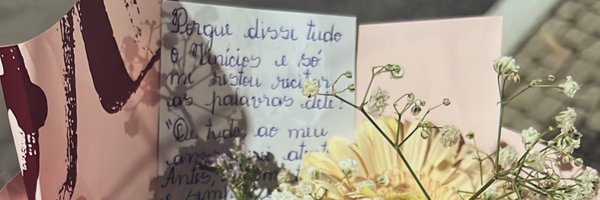 Porque disse tudo
o Vinícios e só
me restou recitar
as palavras dele:
"De tudo, ao meu
amor serei atento
Antes,
e